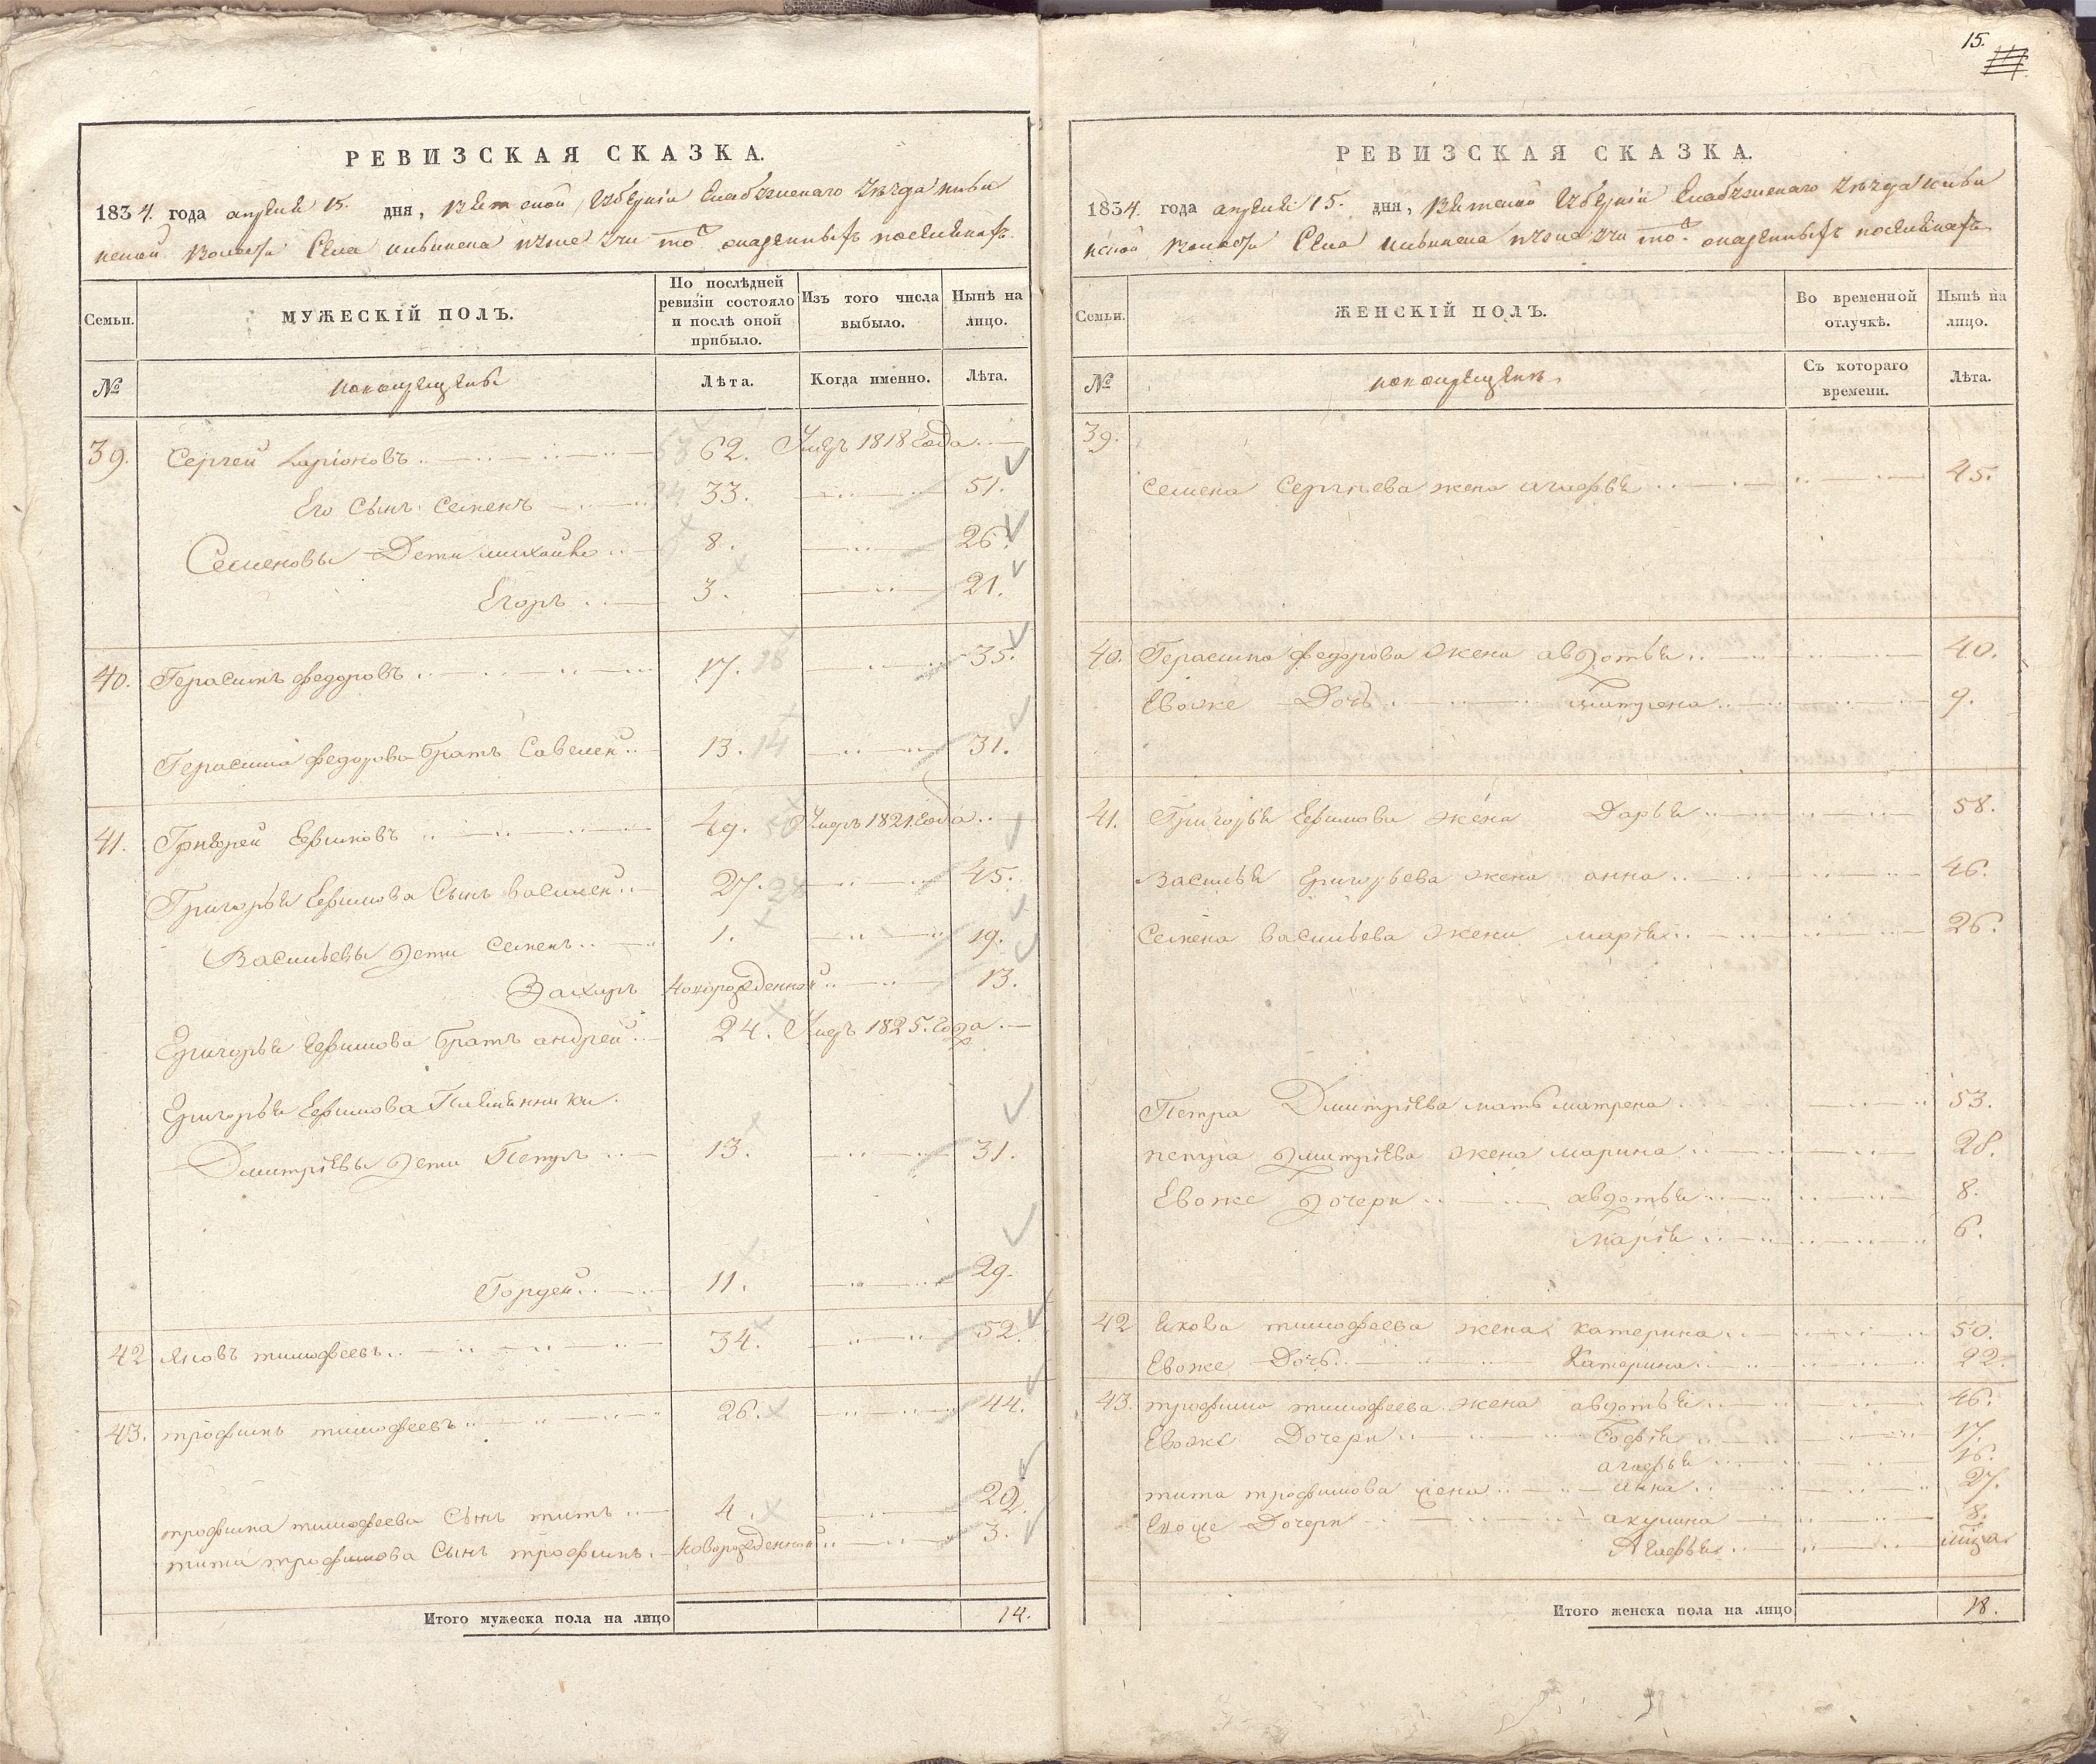 РЕВИЗСКАЯ СКАЗКА.
1834. года апреля 15. дня, Вятской Губернiи Елабужскаго Уѣзда
Волости Села
Семьи.
МУЖЕСКІЙ ПОЛЪ.
По послѣдней ревизіи состояло и послѣ оной прибыло.
Изъ того числа выбыло.
Нынѣ на лицо.
№
Лѣта.
Когда именно.
Лѣта.
39. Сергей Ларіоновъ 62. Умеръ 1818 Года
Его Сынъ Семенъ 33. 51.
Семеновы Дети Михайло 8. 26.
Егоръ 3. 21.
40. Герасимъ Федоровъ 17. 18 35.
Герасима Федорова братъ Савелей 13. 14 31.
41. Григорей Ефимовъ 49. 50 Умеръ 1821. Года
Григорья Ефимова Сынъ Василей 27. 28 45.
Васильевы Дети Семенъ 1. 19.
Захаръ Новорожденной 13.
Григорья Ефимова братъ Андрей 24. Умеръ 1825. Года
Григорья Ефимова Племянники
Дмитріевы Дети Петръ 13. 31.
Гордей 11. 29.
42 Яковъ Тимофеевъ 34. 52.
43. Трофимъ Тимофеевъ 26. 44.
Трофима Тимофеева Сынъ Титъ 4. 22.
Тита Трофимова Сынъ Трофимъ Новорожденной 3.
Итого мужеска пола на лицо 14.
15.
РЕВИЗСКАЯ СКАЗКА.
1834. года апреля 15. дня, Вятской Губерніи Елабужскаго Уѣзда
Волости Села
Семьи.
ЖЕНСКІЙ ПОЛЪ.
Во временной отлучкѣ.
Нынѣ на лицо.
№
Съ котораго времени.
Лѣта.
39.
Семена Сергѣева жена Агафья 45.
40. Герасима Федорова жена Авдотья 40.
Евоже Дочь 9.
41. Григорья Ефимова жена Дарья 58.
Василья Григорьева жена Анна 46.
Семена Васильева жена Марія 26.
Петра Дмитріева мать Матрена 53.
Петра Дмитріева жена Марина 28.
Евоже Дочери Авдотья 8.
Марія 6.
42 Якова Тимофеева жена Катерина 50.
Евоже Дочь Катерина 22.
43. Трофима Тимофеева жена Авдотья 46.
Евоже Дочери Софія 17.
Агафья 16.
Тита Трофимова жена Анна 27.
Евоже Дочери Акулина 8.
Агафья
Итого женска пола на лицо 18.